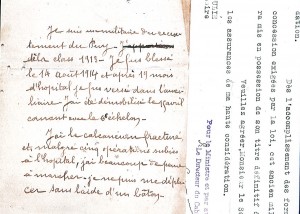 Je suis un militaire du recru
tement du Puy
de la classe 1913 - J'ai été blessé
le 14 août 1914 et après 19 mois
d'hôpital je fus versé dans l'auxi
liaire j'ai été démobilisé le 9 avril
courant avec le échelon -
J'ai le calcaneum fracturé
et malgré cinq opérations subies
à l'hôpital, j'ai beaucoup de peine
à marcher - je ne puis me dépla
cer sans l'aide d'un bâton
dation.
Dès l'accomplissement des for
concession exigées par la loi, cet ancien mil
ra mis en possession de son titre définitif d
Veuillez agréer, Monsieur le S
les assurances de ma haute considération
Pour le Ministre et par
Le Directeur du Cab